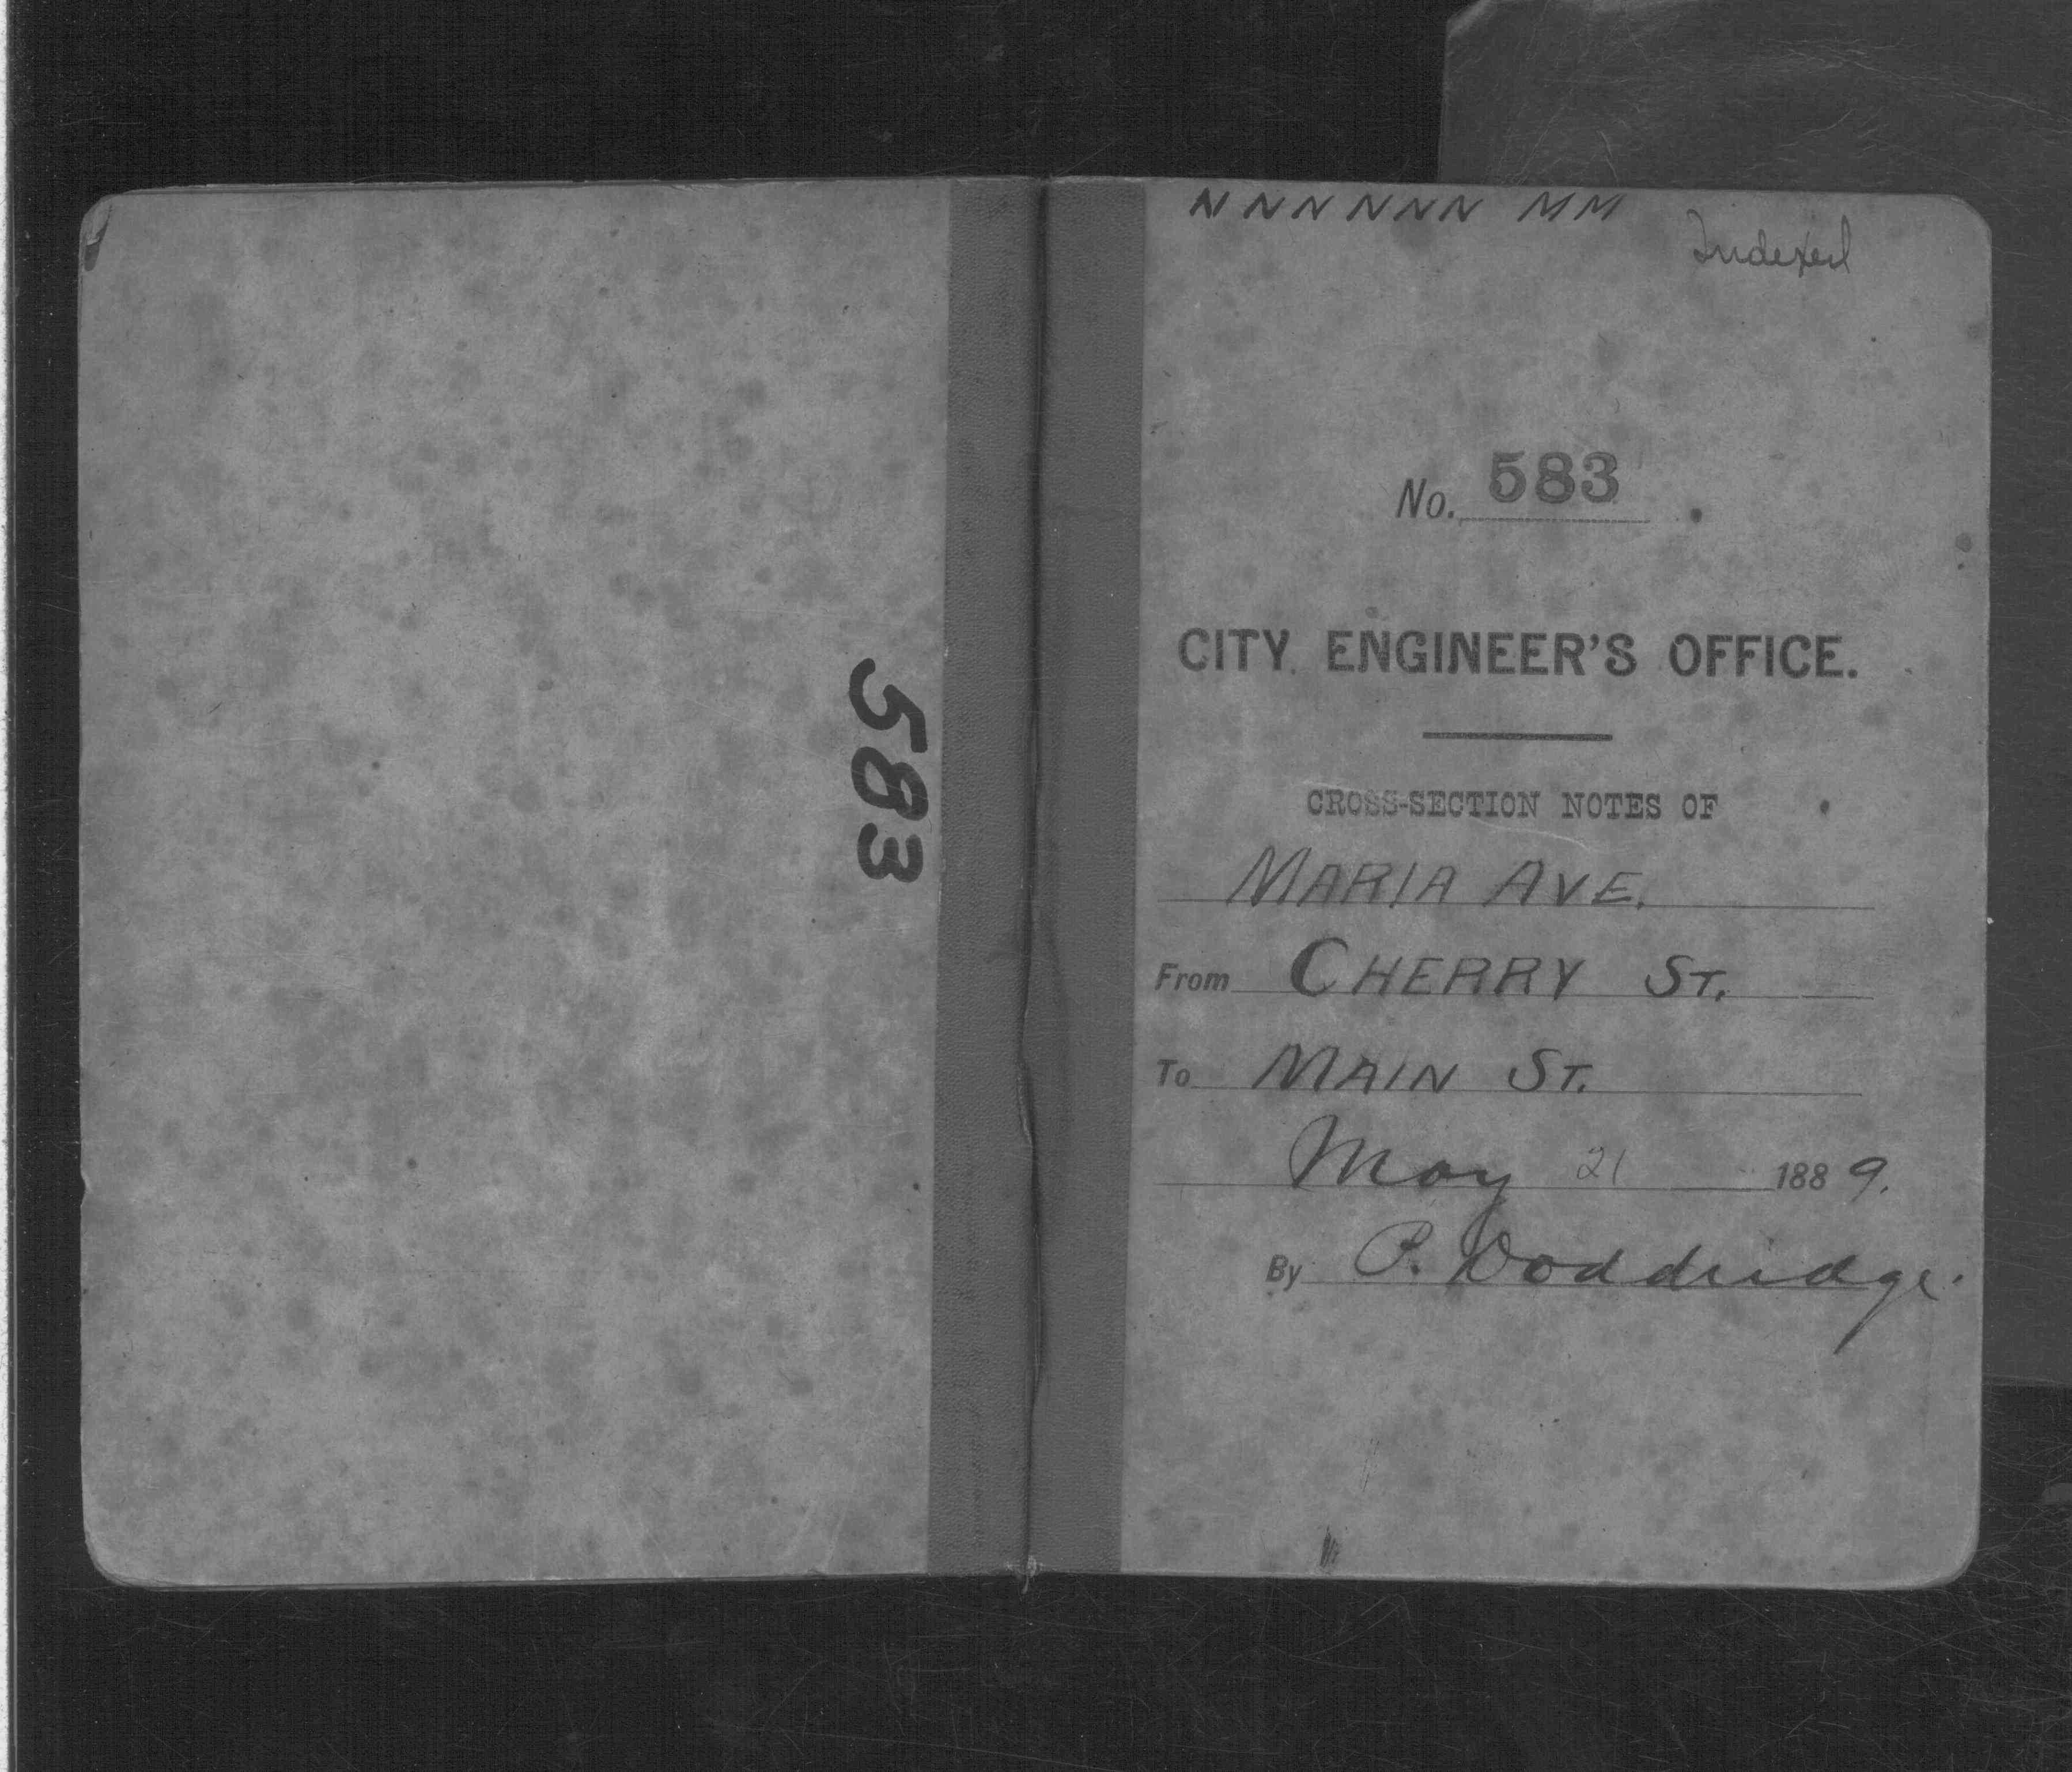 583
N N N N N N M M
Indexed
No. 583
CITY ENGINEER'S OFFICE.
CROSS-SECTION NOTES OF
MARIA AVE.
From CHERRY ST.
To MAIN ST.
May 21 1889.
By P. Doddridge.